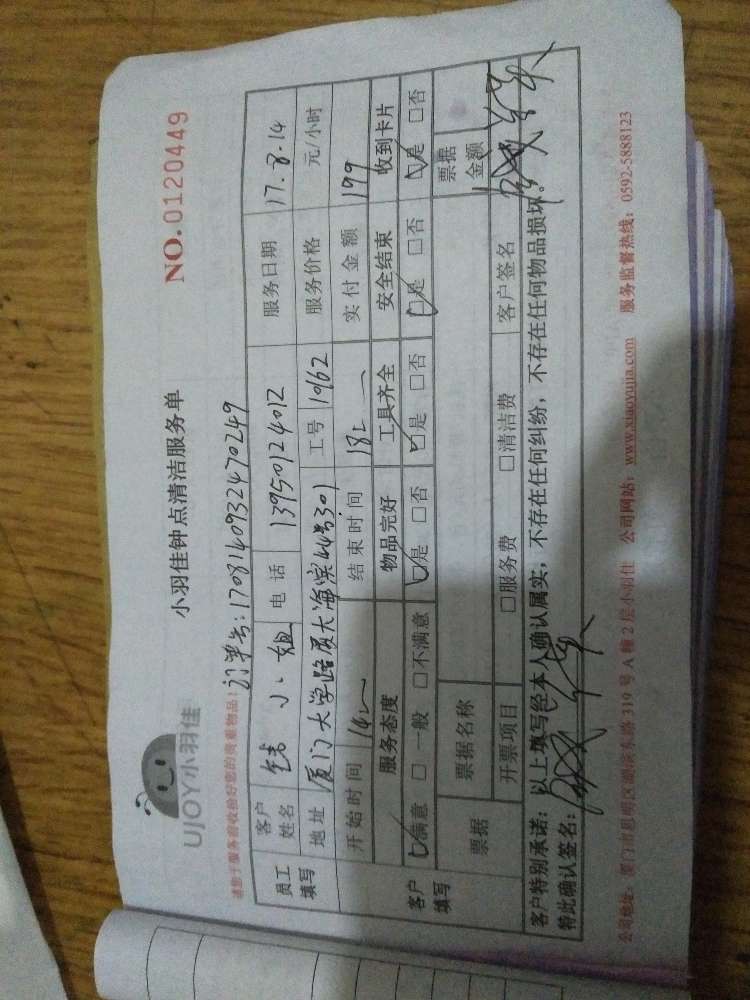 UJOY小羽佳
小羽佳钟点清洁服务单
NO.0120449
请您于服务前收拾好您的贵重物品!
订单号:1708140932470249
员工填写 客户姓名 小姐 电话 13950124012 服务日期 17.8.14
地址 厦门大学路 大海滨 号301 工号 1962 服务价格 元/小时
开始时间 14 结束时间 18 实付金额 199
客户填写 服务态度 物品完好 工具齐全 安全结束 收到卡片
☑满意 □一般 □不满意 ☑是 □否 ☑是 □否 ☑是 □否 ☑是 □否
票据 票据名称 票据金额
开票项目 □服务费 □清洁费 客户签名
客户特别承诺: 以上填写经本人确认属实,不存在任何纠纷,不存在任何物品损坏。
特此确认签名:
公司地址:厦门市思明区湖滨东路319号A幢2层小羽佳 公司网站:www.xiaoyujia.com 服务监督热线:0592-5888123